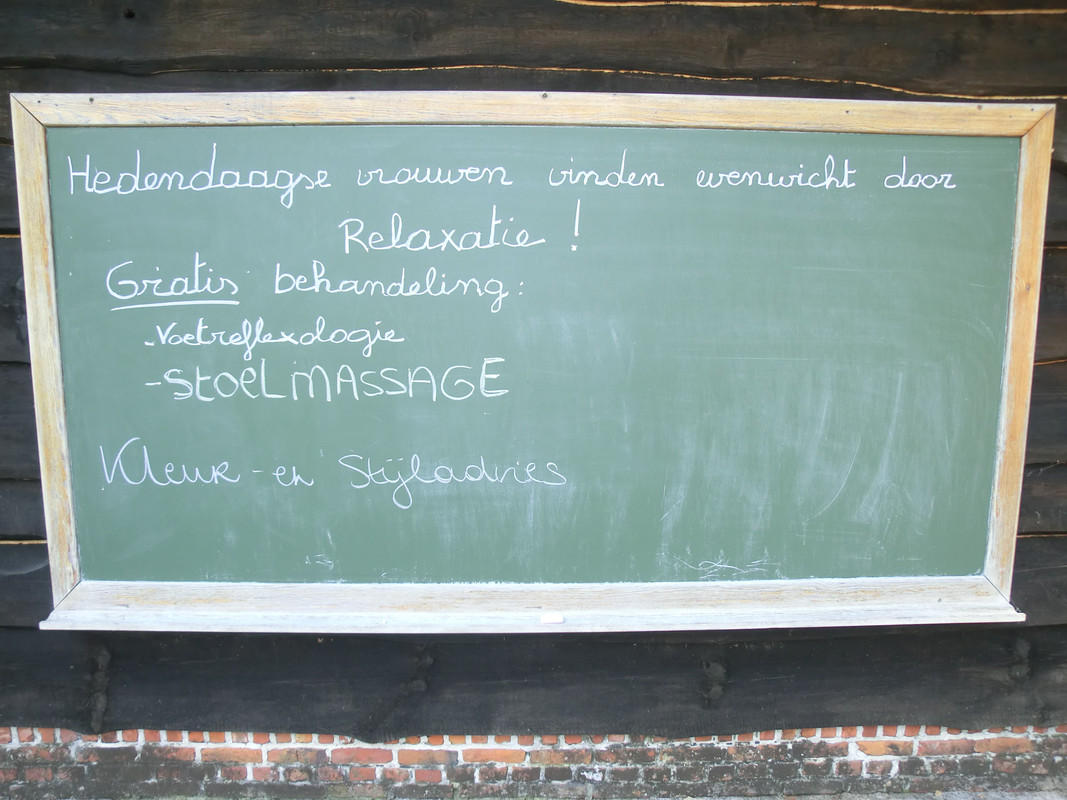 Hedendaagse vrouwen vinden evenwicht door
Relaxatie !
Gratis behandeling:
-Voetreflexologie
-StOeLMASSAGE
Kleur-en Stijladvies